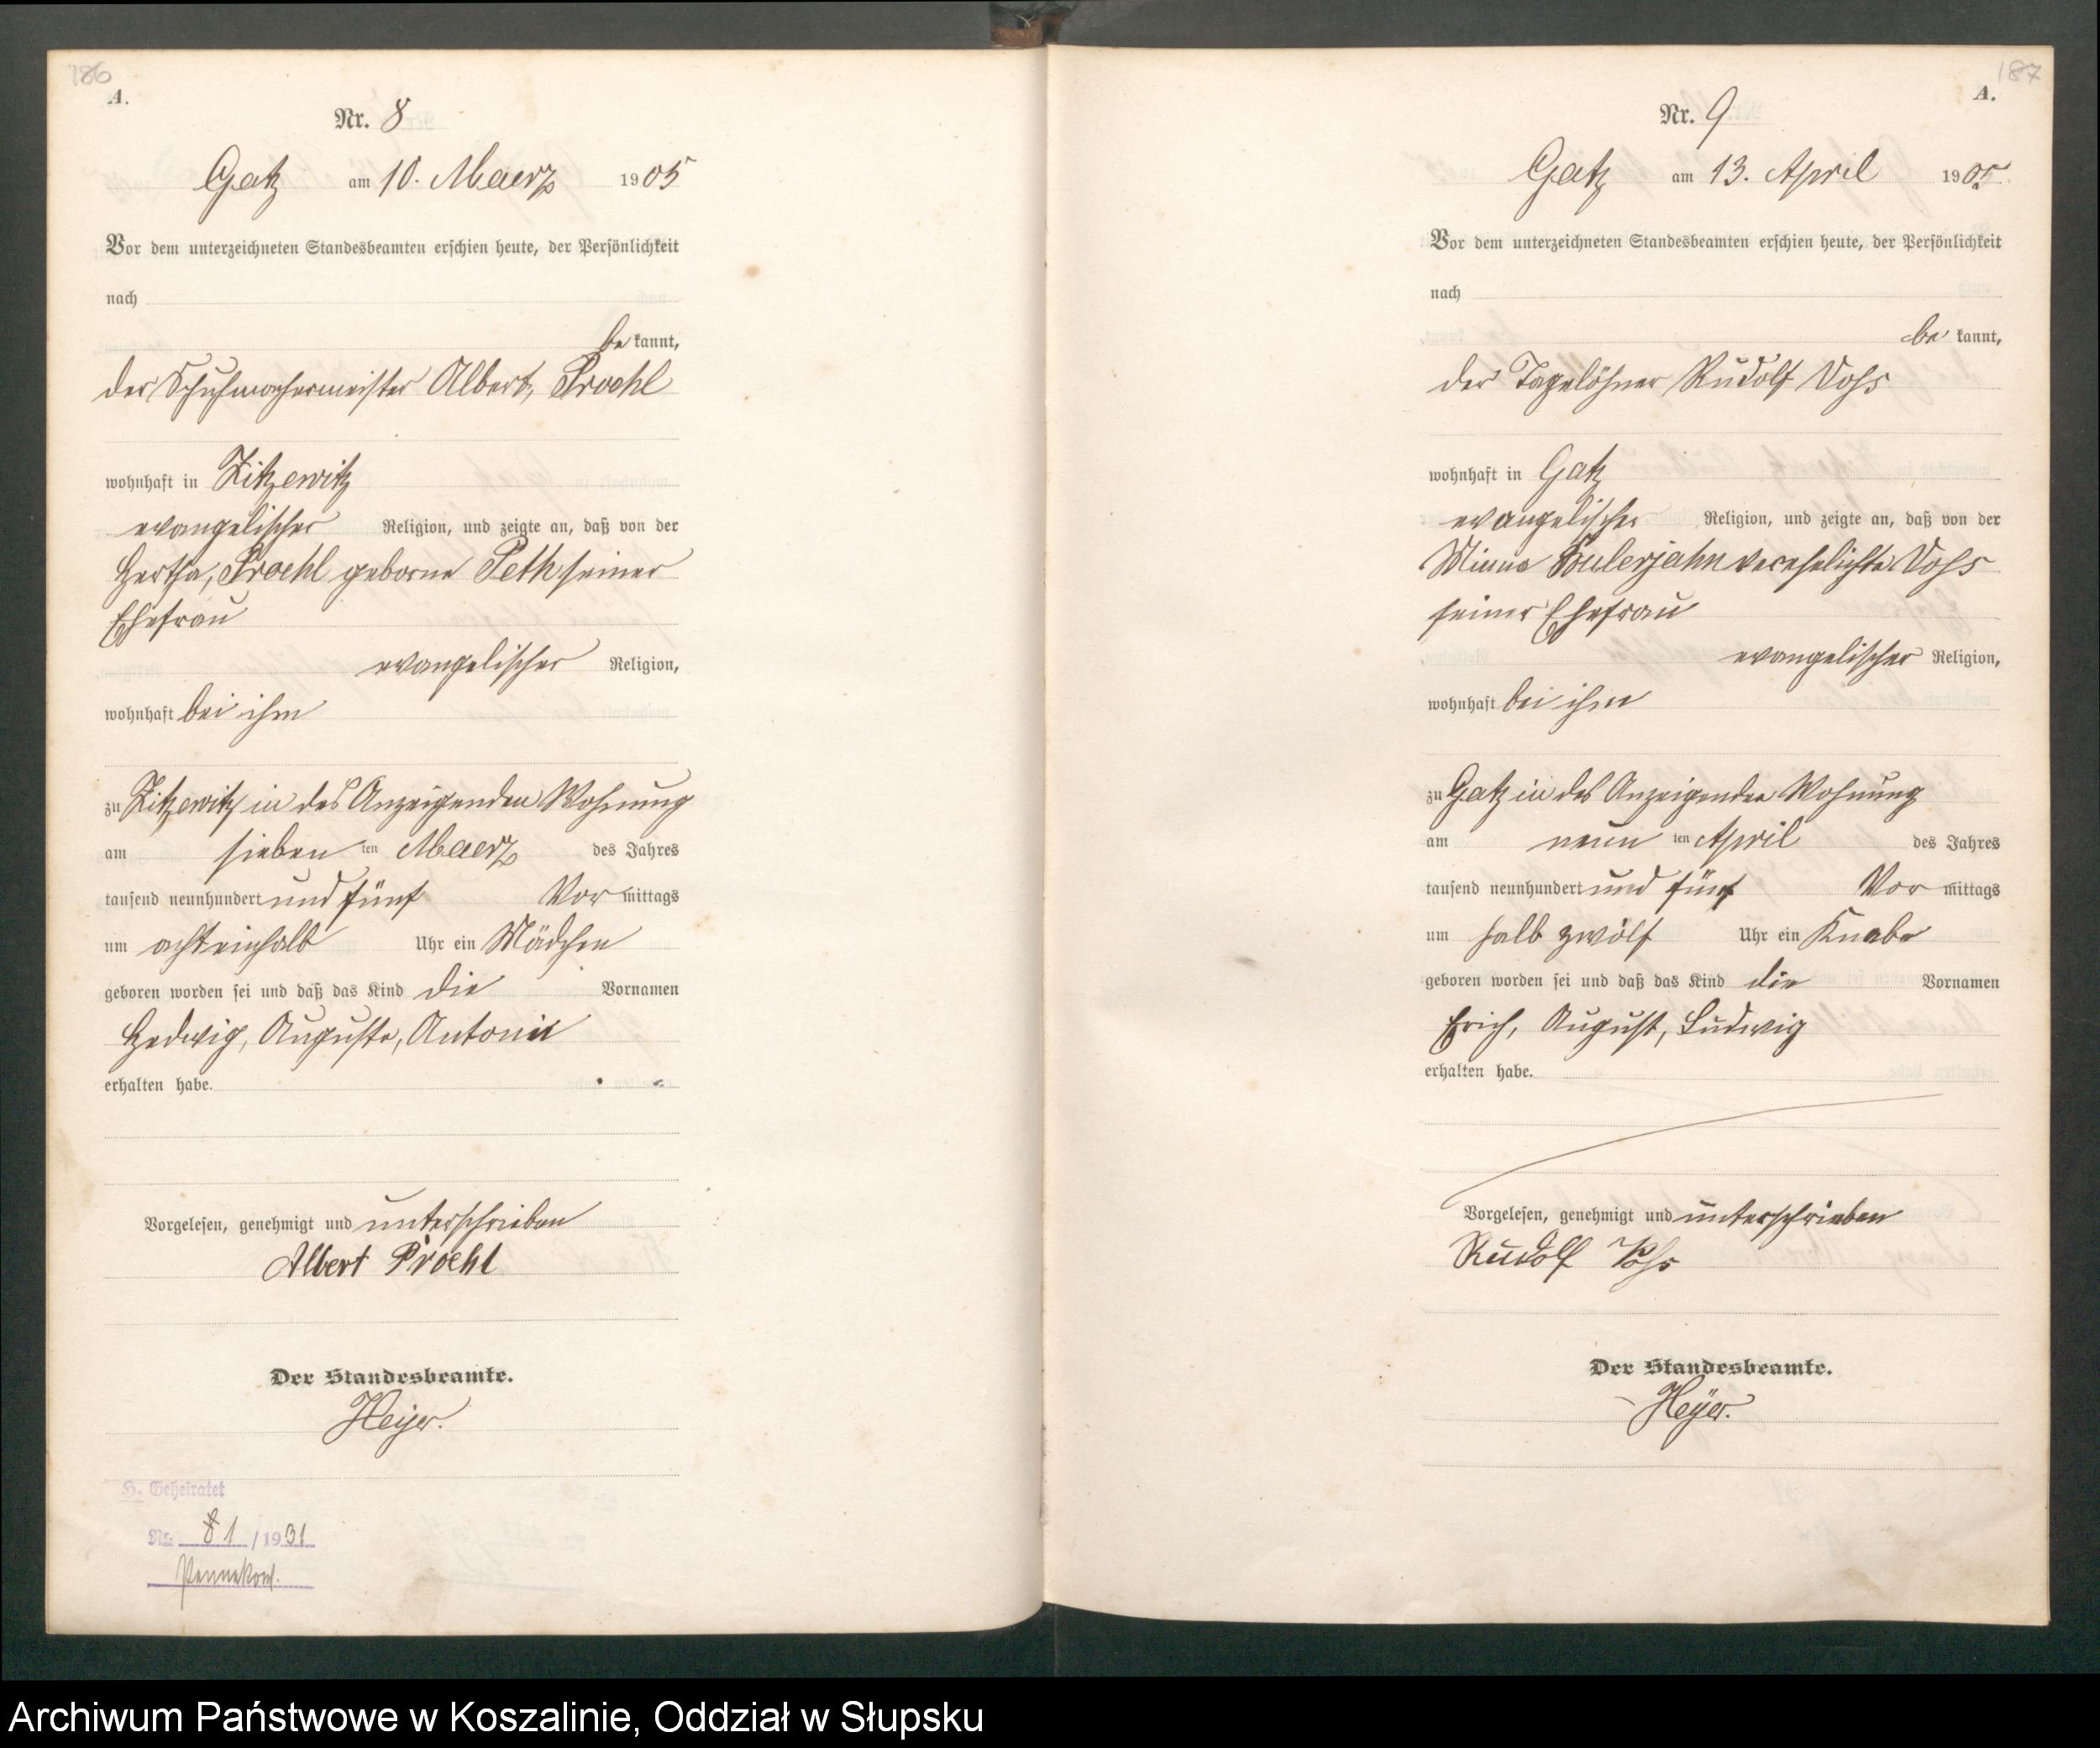 186
A.
Nr. 8
Gatz am 10. Maerz 1905
Vor dem unterzeichneten Standesbeamten erschien heute, der Persönlichkeit
nach
be kannt,
der Schuhmachermeister Albert, Proehl
wohnhaft in Zitzewitz
evangelischer Religion, und zeigte an, daß von der
Hertha, Proehl geborne Peth seiner
Ehefrau
evangelischer Religion,
wohnhaft bei ihm
zu Zitzewitz in des Anzeigenden Wohnung
am sieben ten Maerz des Jahres
tausend neunhundert und fünf Vor mittags
um acht einhalb Uhr ein Mädchen
geboren worden sei und daß das Kind die Vornamen
Hedwig, Auguste, Antonie
erhalten habe.
Vorgelesen, genehmigt und unterschrieben
Albert Proehl
Der Standesbeamte.
Heyer.
H. Geheiratet
Nr. 1/1931
Pennekow.
187
A.
Nr. 9
Gatz am 13. April 1905
Vor dem unterzeichneten Standesbeamten erschien heute, der Persönlichkeit
nach
be kannt,
der Tagelöhner Rudolf Vohs
wohnhaft in Gatz
evangelischer Religion, und zeigte an, daß von der
Minna verehelichte Vohs
seiner Ehefrau
evangelischer Religion,
wohnhaft bei ihm
zu Gatz in des Anzeigenden Wohnung
am neun ten April des Jahres
tausend neunhundert und fünf Vor mittags
um halb zwölf Uhr ein Knabe
geboren worden sei und daß das Kind die Vornamen
Erich, August, Ludwig
erhalten habe.
Vorgelesen, genehmigt und unterschrieben
Rudolf Vohs
Der Standesbeamte.
Heyer.
Archiwum Państwowe w Koszalinie, Oddział w Słupsku